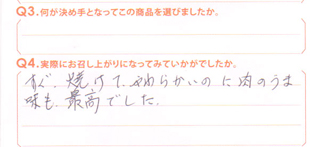 Q3.何が決め手となってこの商品を選びましたか。
Q4.実際にお召し上がりになってみていかがでしたか。
すぐ、焼けて、やわらかいのに肉のうま
味も、最高でした。